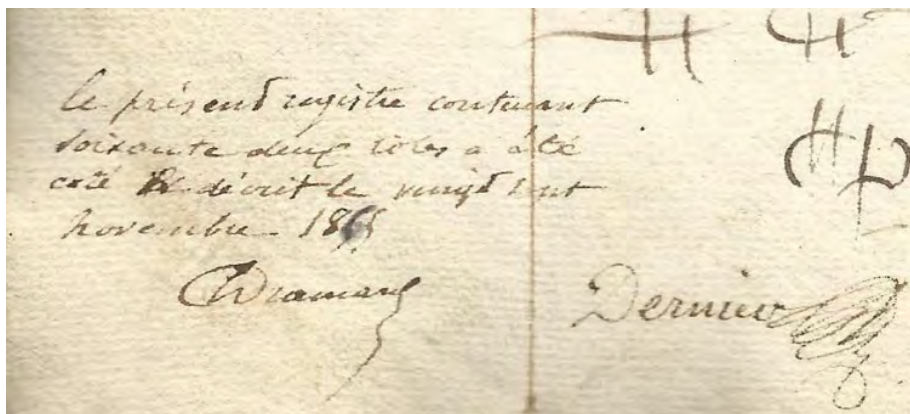 le présent registre contenant
soixante deux roles a été
coté et décrit le vingt sept
novembre 18
Dernier